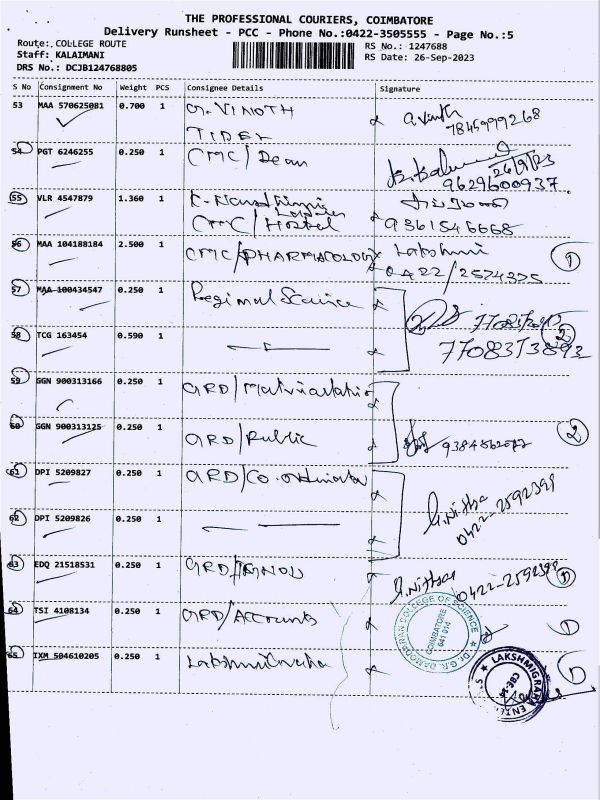 THE PROFESSIONAL COURIERS, COIMBATORE
Delivery Runsheet - PCC - Phone No.:0422-3505555 - Page No.:5
Route: COLLEGE ROUTE RS No.: 1247688
Staff: KALAIMANI RS Date: 26-Sep-2023
DRS No.: DCJB124768805
S No Consignment No Weight PCS Consignee Details Signature
53 MAA 570625081 0.700 1 G. VINOTH
TIDEL
7845999268
54 PGT 6246255 0.250 1 CMC/Dean
26/9/23
9629600937
55 VLR 4547879 1.360 1
CMC/Hostel 9361546668
56 MAA 104188184 2.500 1 CMC/PHARMACOLOGY Lakshmi
0422/2574375 1
57 MAA 100434547 0.250 1 Regional Science
2
58 TCG 163454 0.590 1
7708373892
59 GGN 900313166 0.250 1 GRD/Matriculation
60 GGN 900313125 0.250 1 GRD/Public 2
61 DPI 5209827 0.250 1 GRD/Co-ordinator
G. Nithya
0422-2592398
62 DPI 5209826 0.250 1
63 EDQ 21518531 0.250 1 GRD/
G. Nithya 0422-2592398 1
64 TSI 4108134 0.250 1 GRD/Accounts 1
Dr. G.R. DAMODARAN COLLEGE OF SCIENCE
COIMBATORE
641 014
65 IXM 504610205 0.250 1 1